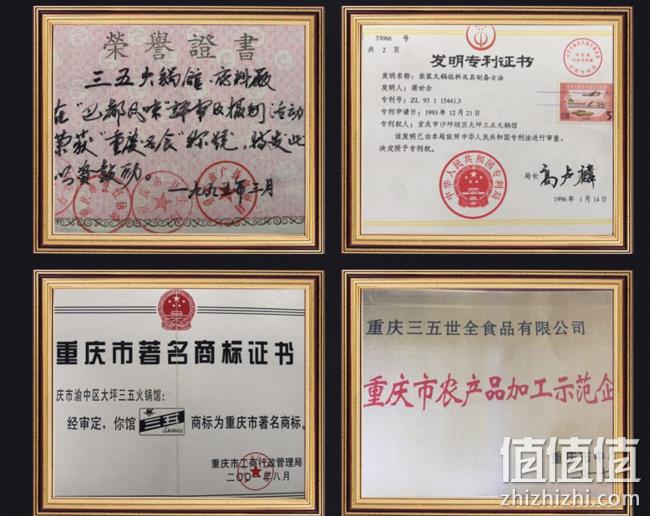 榮譽證書
三五火鍋館 底料廠
在“巴都风味”評审及摄制活动
荣获“重庆名食”称號，特发此
以资鼓励。
一九九五年三月
33066 号
共 2 页
发明专利证书
发明名称：袋装火锅佐料及其制备方法
发明人：蒲世全
专利号：ZL 93 1 15441.3
专利申请日：1993 年 12 月 21 日
专利权人：重庆市沙坪坝区大坪三五火锅馆
该发明已由本局依照中华人民共和国专利法进行审查，
决定授予专利权。
中华人民共和国专利局
局长 高卢麟
1996 年 1 月 14
重庆市著名商标证书
庆市渝中区大坪三五火锅馆：
经审定，你馆 三五 商标为重庆市著名商标。
SANWU
重庆市工商行政管理局
二00 年八月
重庆三五世全食品有限公司
重庆市农产品加工示范企
值值值
zhizhizhi.com